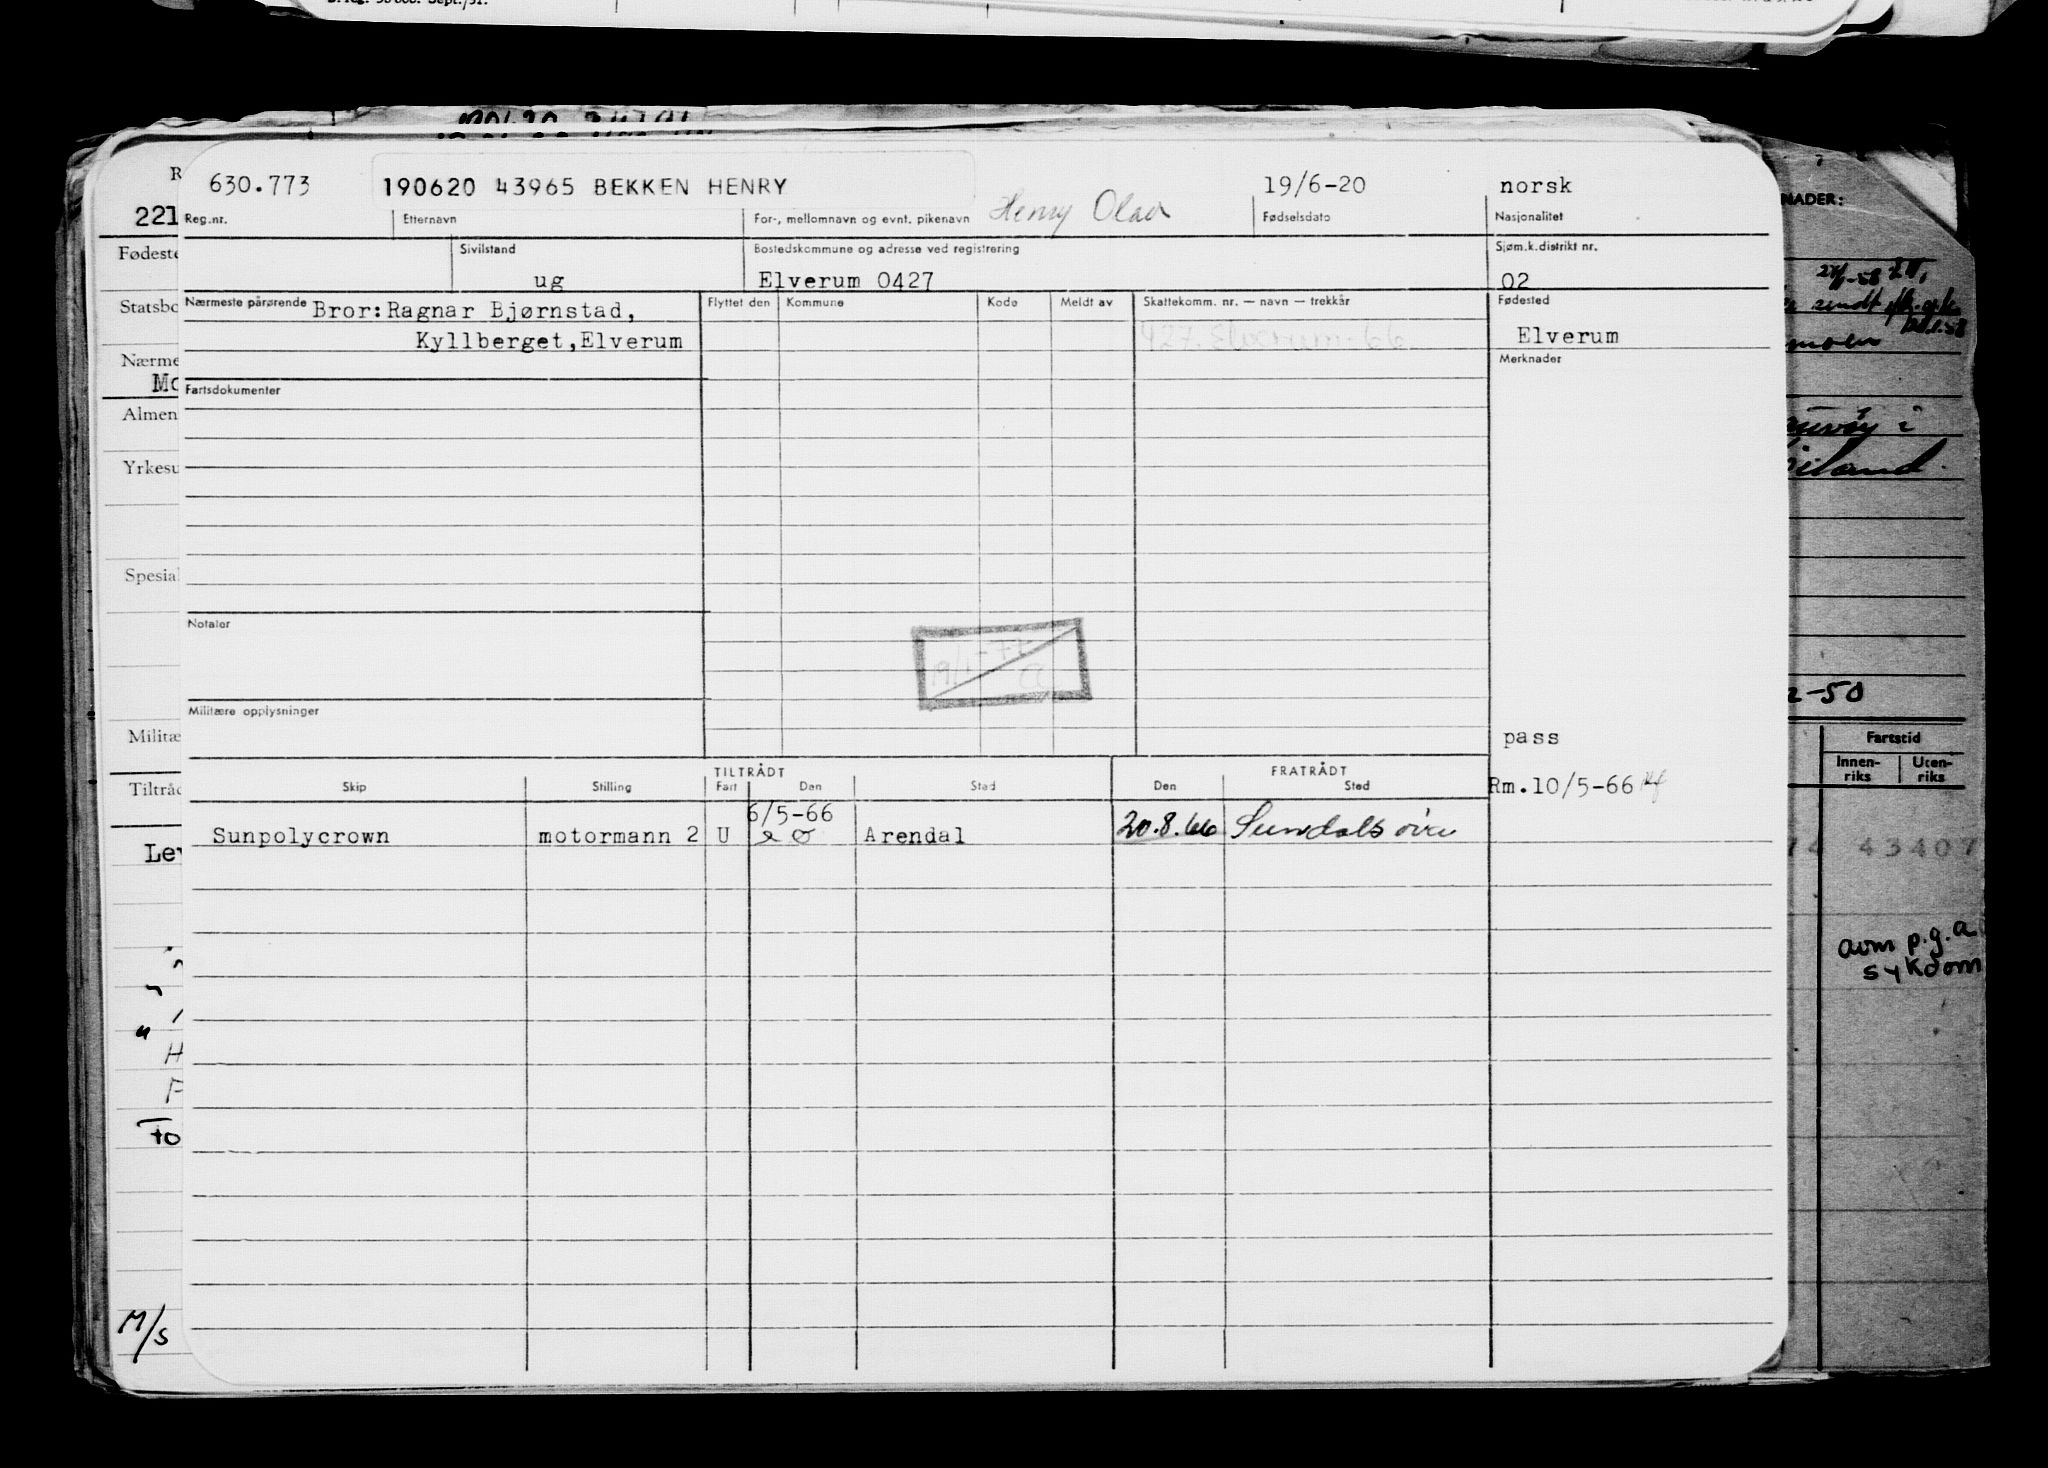 630.773 190620 43965 BEKKEN HENRY 19/6-20 norsk
Reg.nr. Etternavn For-, mellomnavn og evnt. pikenavn Henry Olav Fødselsdato Nasjonalitet
Sivilstand Bostedskommune og adresse ved registrering Sjøm.k.distrikt nr.
ug Elverum 0427 02
Nærmeste pårørende Bror:Ragnar Bjørnstad, Flyttet den Kommune Kode Meldt av Skattekomm. nr. — navn — trekkår Fødested
Kyllberget,Elverum 427. Elverum-66. Elverum
Merknader
Fartsdokumenter
Notater
Militære opplysninger
pass
TILTRÅDT FRATRÅDT
Skip Stilling Fart Den Sted Den Sted Rm.10/5-66
6/5-66
Sunpolycrown motormann 2 U Arendal 20.8.66 Sundalsøra
221
Fødeste
Statsbo
Nærme
Mo
Almen
Yrkesu
Spesial
Militæ
Tiltråd
Lev
H
F
Fo
M/s
NADER:
sendt
2-50
Fartstid
Innen-riks Uten-riks
74 43407
avm p.g.a
sykdom